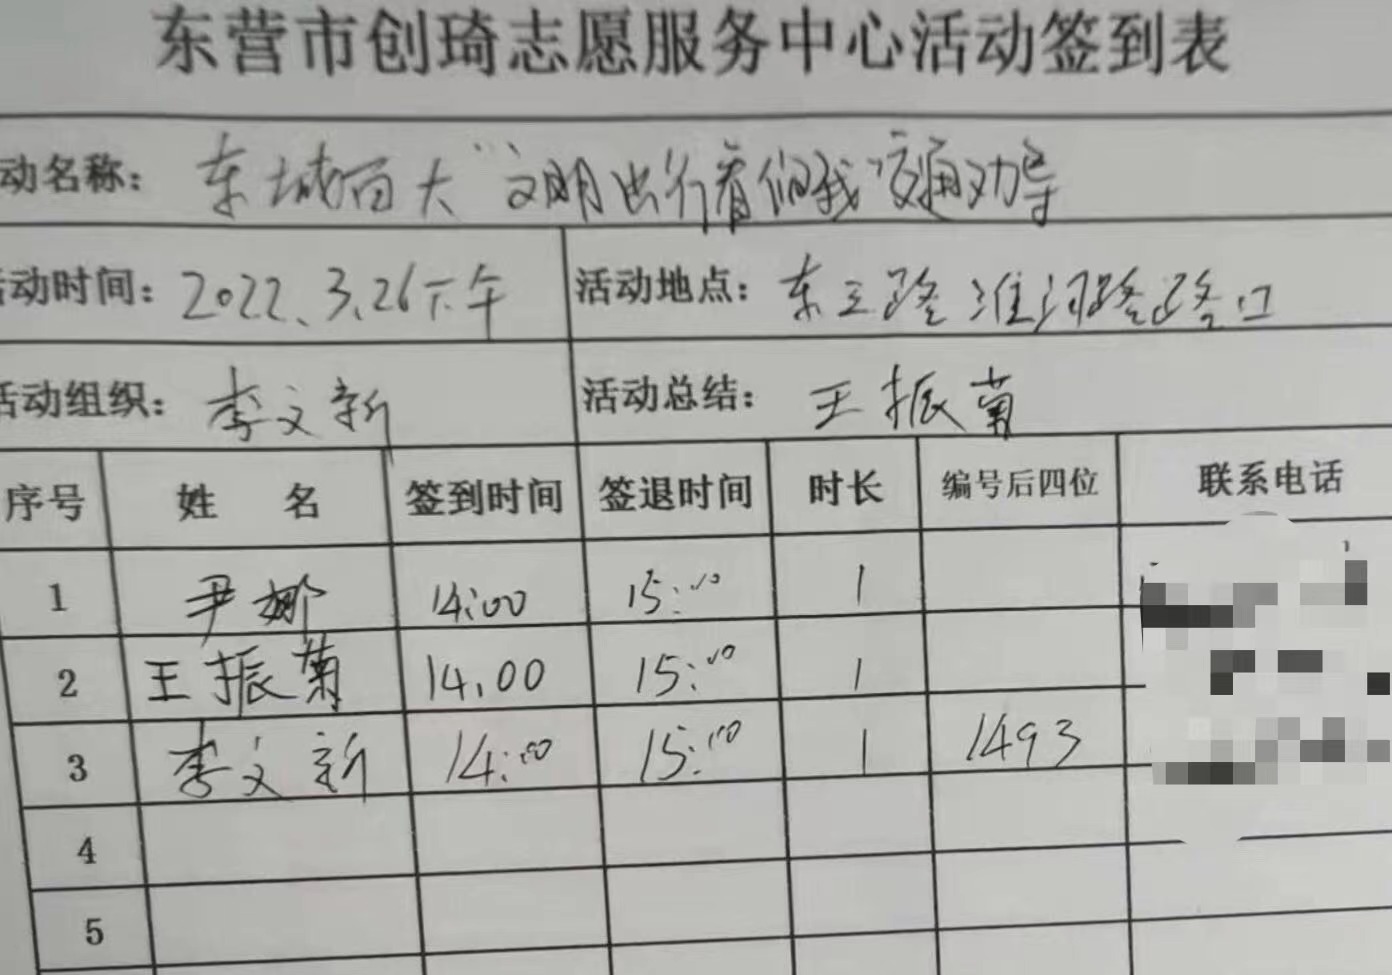 东营市创琦志愿服务中心活动签到表
动名称: 东城百大“文明出行看俺我”交通劝导
活动时间: 2022.3.26下午 活动地点: 东三路淮河路路口
活动组织: 李文新 活动总结: 王振菊
序号 姓 名 签到时间 签退时间 时长 编号后四位 联系电话
1 尹娜 14:00 15:00 1
2 王振菊 14.00 15:00 1
3 李文新 14:00 15:00 1 1493
4
5